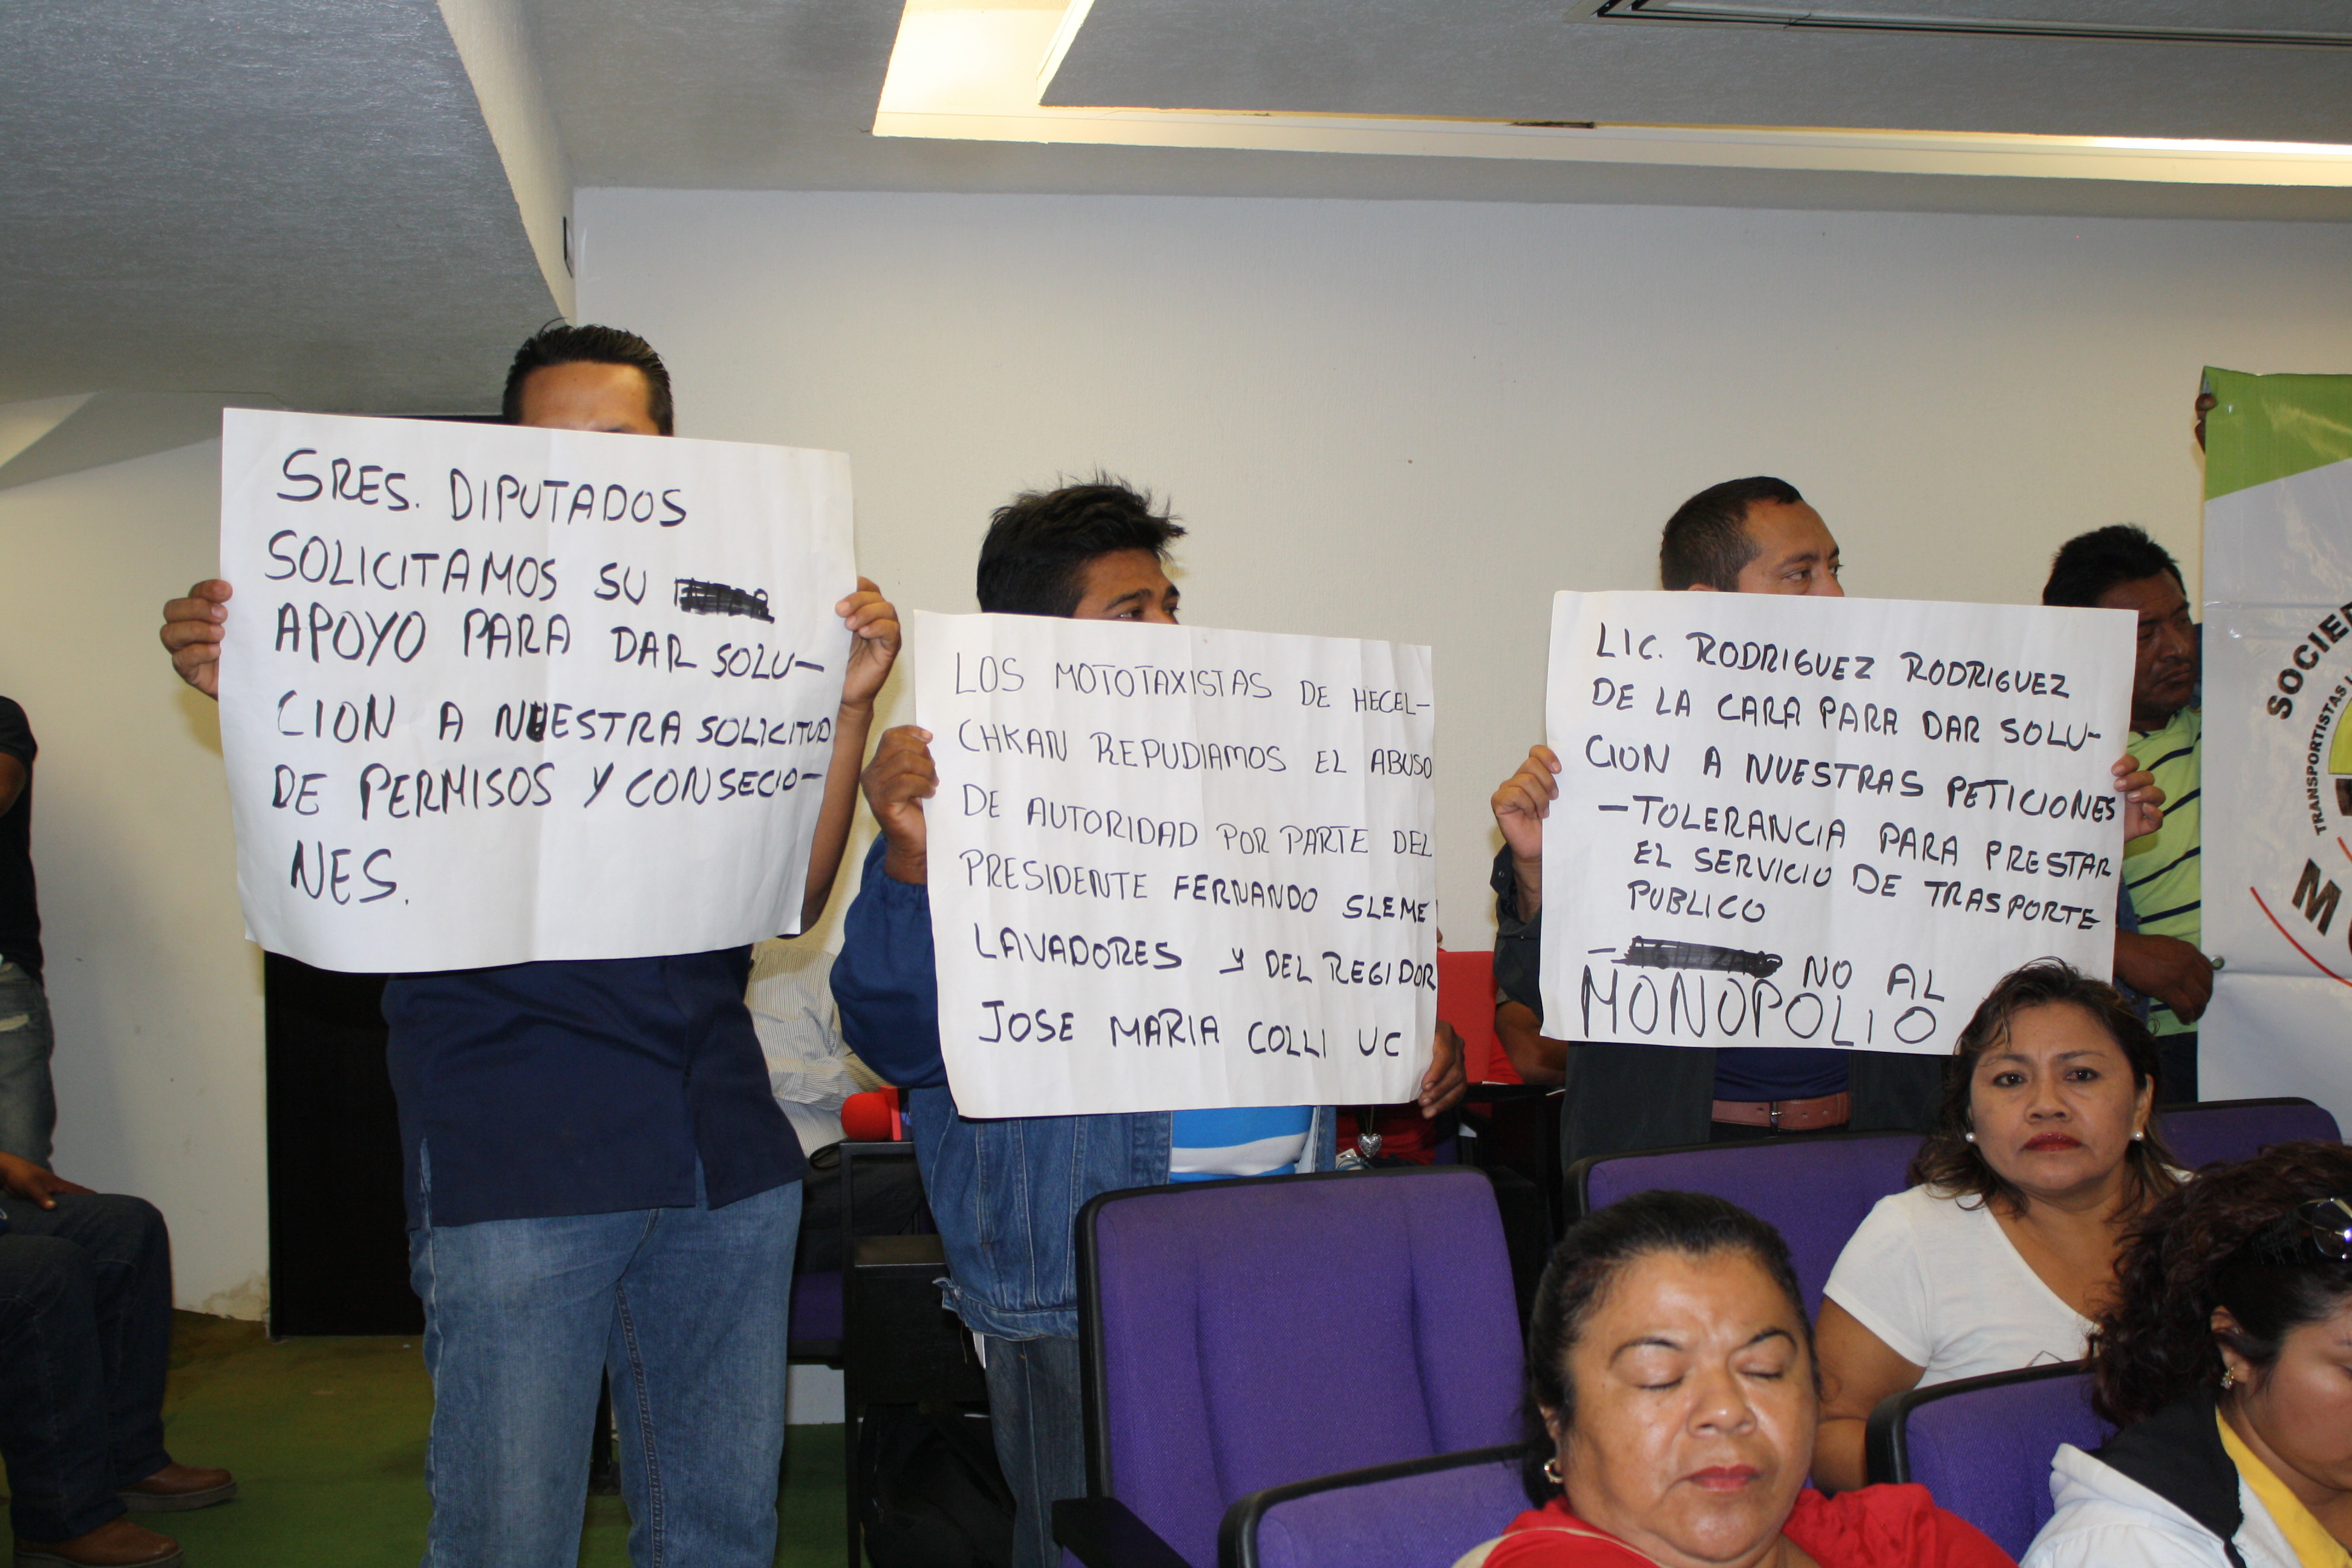 SRES. DIPUTADOS
SOLICITAMOS SU
APOYO PARA DAR SOLU-
CION A NUESTRA SOLICITUD
DE PERMISOS Y CONSECIO-
NES.
LOS MOTOTAXISTAS DE HECEL-
CHKAN REPUDIAMOS EL ABUSO
DE AUTORIDAD POR PARTE DEL
PRESIDENTE FERNANDO SLEME
LAVADORES Y DEL REGIDOR
JOSE MARIA COLLI UC
LIC. RODRIGUEZ RODRIGUEZ
DE LA CARA PARA DAR SOLU-
CION A NUESTRAS PETICIONES
-TOLERANCIA PARA PRESTAR
EL SERVICIO DE TRASPORTE
PUBLICO
- NO AL
MONOPOLIO
TRANSPORTISTAS